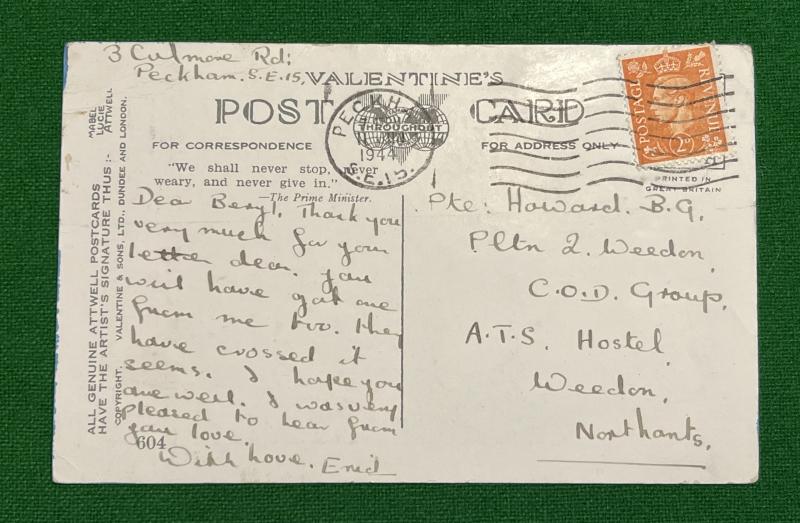 3 Culmore Rd;
Peckham. S.E.15,
VALENTINE'S
POST CARD
FOR CORRESPONDENCE
FOR ADDRESS ONLY
"We shall never stop, never
weary, and never give in."
—The Prime Minister.
PECKHAM
THROUGHOUT
1944
S.E.15.
POSTAGE
REVENUE
2D
PRINTED IN
GREAT BRITAIN
MABEL
LUCIE
ATTWELL
ALL GENUINE ATTWELL POSTCARDS
HAVE THE ARTIST'S SIGNATURE THUS :-
COPYRIGHT. VALENTINE & SONS, LTD., DUNDEE AND LONDON.
Dear Beryl, Thank you
very much for your
letter dear. you
will have got one
from me too. they
have crossed it
seems. I hope you
are well. I was very
pleased to hear from
you love.
604
With love. Enid
Pte: Howard. B.G,
Pltn 2. Weedon,
C.O.D. Group,
A.T.S. Hostel,
Weedon,
Northants,